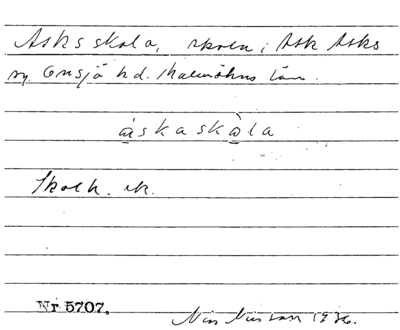 Asks skola, skolen i Ask Asks
sn. Onsjö hd. Malmöhus län.
áskaskò̲la
Skolh. sk.
Nr 5707.
Nils Nilsson 1936.